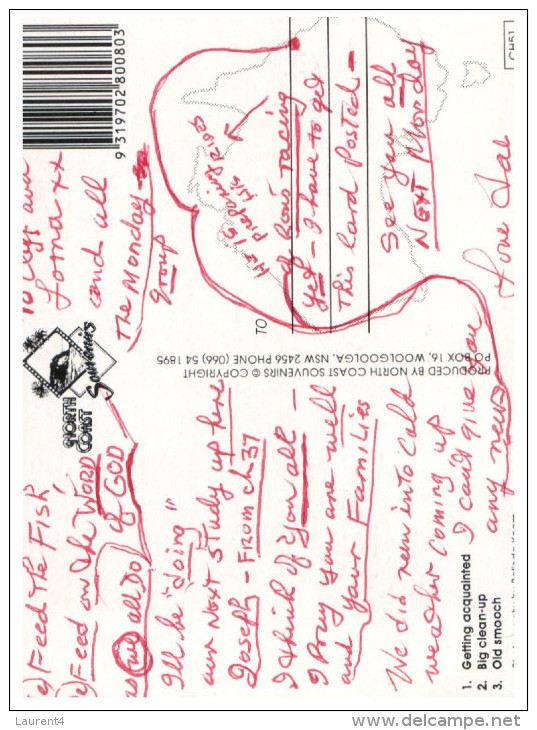 9 319702 800803
CH51
e) Feed the Fish,
(e) Feed on the WORD
of GOD
as we all Do!
I'll be "doing"
our NEXT Study up here
Joseph - FROM ch 37
I think of You all -
I Pray You are well
and your FamiLies
We did run into Cold
weather coming up
I can't give you
any news
Lorna xx
and all
The Monday
group
He is
preparing
his
TO
yet - I have to get
This Card Posted -
See you all
NEXT Monday
Love
NORTH
COAST
Souvenirs
PRODUCED BY NORTH COAST SOUVENIRS © COPYRIGHT
PO BOX 16, WOOLGOOLGA, NSW 2456 PHONE (066) 54 1895
1. Getting acquainted
2. Big clean-up
3. Old smooch
Laurent4
www.delcampe.net